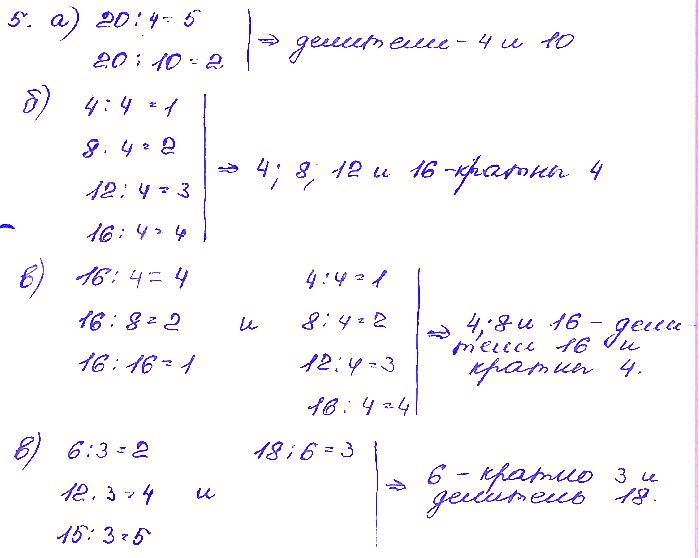 5. а) 20 : 4 = 5
20 : 10 = 2
⇒ делители - 4 и 10
б) 4 : 4 = 1
8 . 4 = 2
12 : 4 = 3
16 : 4 = 4
⇒ 4; 8; 12 и 16 - кратны 4
в) 16 : 4 = 4
16 : 8 = 2
16 : 16 = 1
и
4 : 4 = 1
8 : 4 = 2
12 : 4 = 3
16 : 4 = 4
⇒ 4; 8 и 16 - дели-
тели 16 и
кратны 4.
в) 6 : 3 = 2
12 . 3 = 4
15 : 3 = 5
и
18 : 6 = 3
⇒ 6 - кратно 3 и
делитель 18.